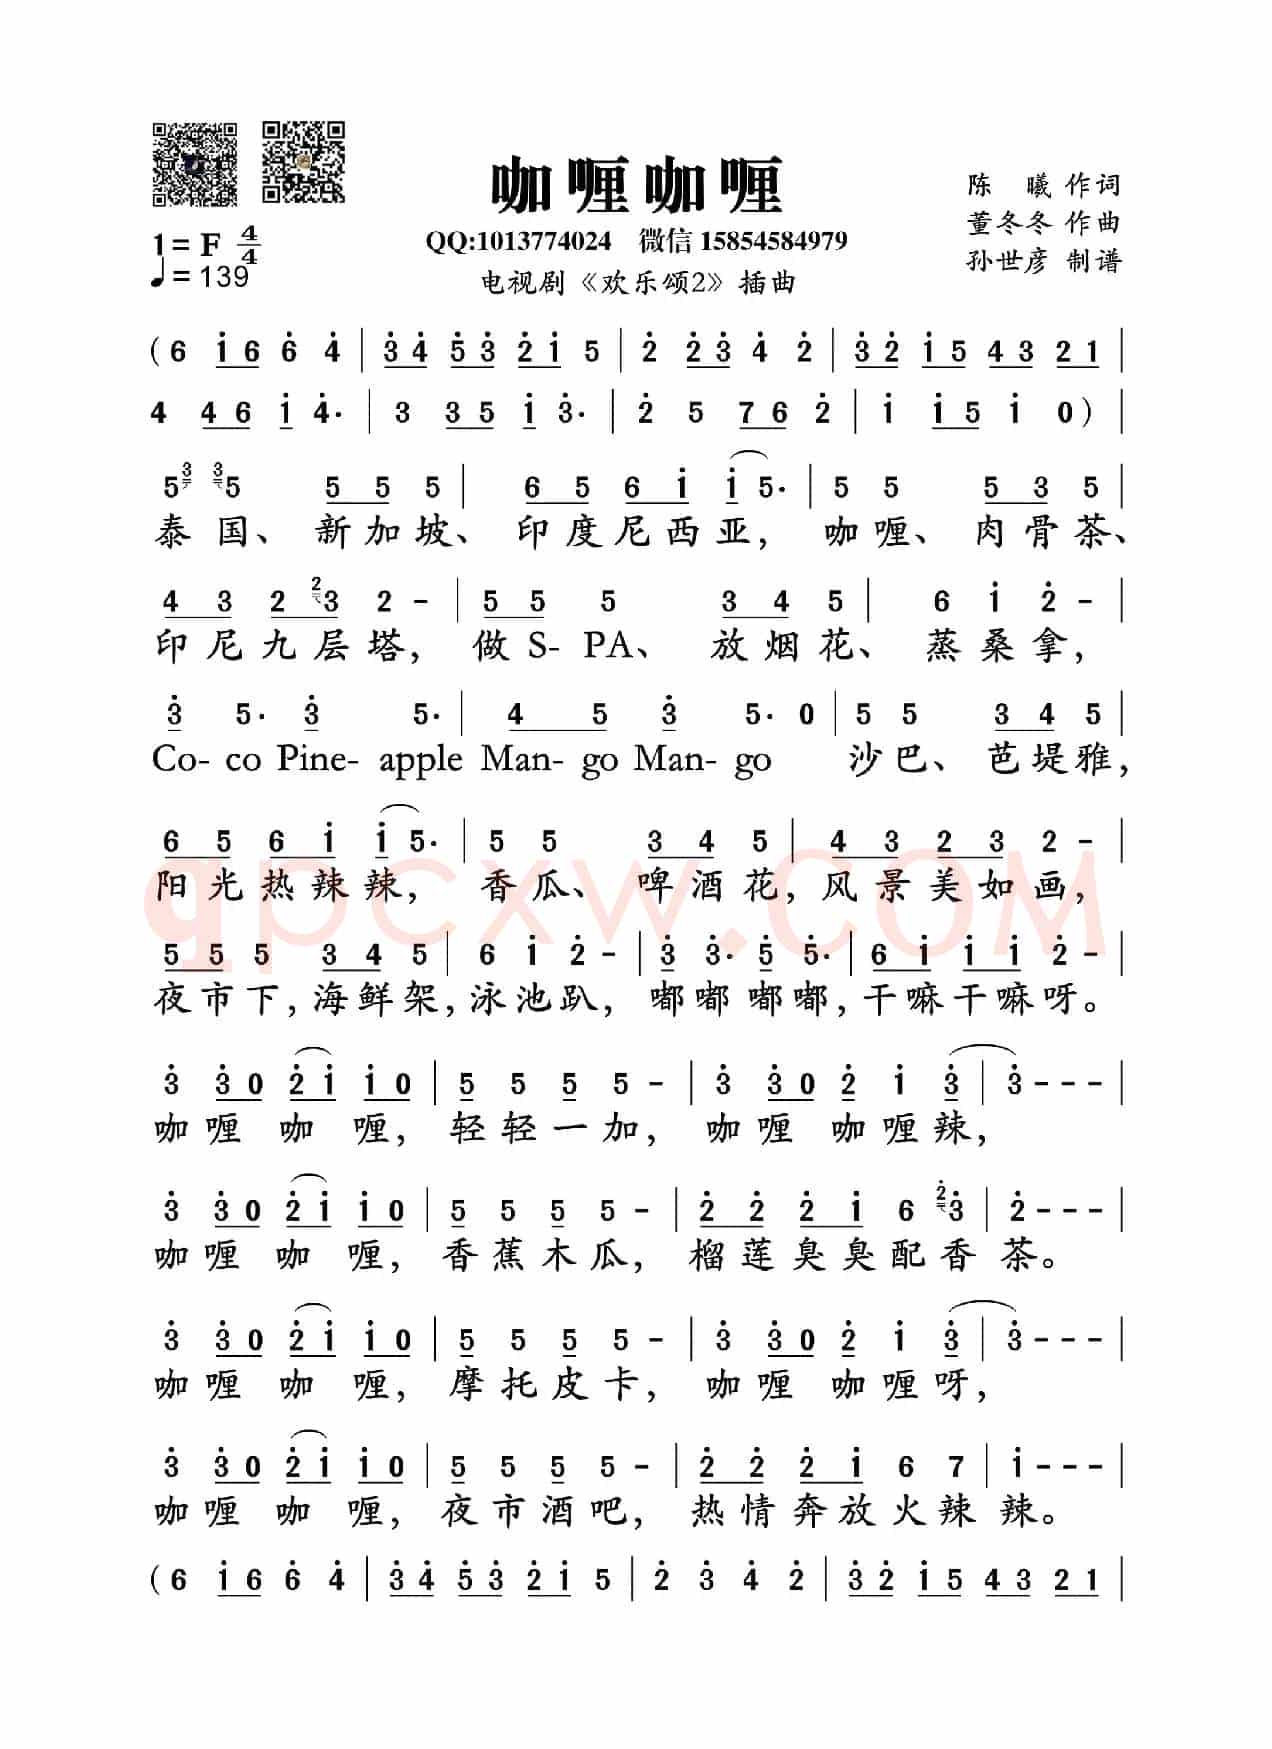 咖喱咖喱
陈 曦 作词
1=F 4/4
QQ:1013774024 微信 15854584979
董冬冬 作曲
♩=139
电视剧《欢乐颂2》插曲
孙世彦 制谱
(6 i̇6 6̇ 4̇ | 3̇4̇ 5̇3̇ 2̇i̇ 5 | 2̇ 2̇3̇ 4̇ 2̇ | 3̇2̇ i̇5 43 21 |
4 46 i̇ 4̇· | 3 35 i̇ 3̇· | 2̇ 5 76 2̇ | i̇ i̇5 i̇ 0) |
5 3 3 5 5 5 5 | 6 5 6 i̇ i̇ 5· | 5 5 5 3 5 |
泰国、新加坡、印度尼西亚,咖喱、肉骨茶、
4 3 2 2 3 2 - | 5 5 5 3 4 5 | 6 i̇ 2̇ - |
印尼九层塔,做S-PA、放烟花、蒸桑拿,
3̇ 5· 3̇ 5· | 4 5 3̇ 5· 0 | 5 5 3 4 5 |
Co- co Pine- apple Man- go Man- go 沙巴、芭堤雅,
6 5 6 i̇ i̇ 5· | 5 5 3 4 5 | 4 3 2 3 2 - |
阳光热辣辣,香瓜、啤酒花,风景美如画,
5 5 5 3 4 5 | 6 i̇ 2̇ - | 3̇ 3̇· 5̇ 5̇· | 6 i̇ i̇ i̇ 2̇ - |
夜市下,海鲜架,泳池趴,嘟嘟嘟嘟,干嘛干嘛呀。
3̇ 3̇0 2̇i̇ i̇0 | 5 5 5 5 - | 3̇ 3̇0 2̇ i̇ 3̇ | 3̇ - - - |
咖喱咖喱,轻轻一加,咖喱咖喱辣,
3̇ 3̇0 2̇i̇ i̇0 | 5 5 5 5 - | 2̇ 2̇ 2̇ i̇ 6 2̇ 3̇ | 2̇ - - - |
咖喱咖喱,香蕉木瓜,榴莲臭臭配香茶。
3̇ 3̇0 2̇i̇ i̇0 | 5 5 5 5 - | 3̇ 3̇0 2̇ i̇ 3̇ | 3̇ - - - |
咖喱咖喱,摩托皮卡,咖喱咖喱呀,
3̇ 3̇0 2̇i̇ i̇0 | 5 5 5 5 - | 2̇ 2̇ 2̇ i̇ 6 7 | i̇ - - - |
咖喱咖喱,夜市酒吧,热情奔放火辣辣。
(6 i̇6 6̇ 4̇ | 3̇4̇ 5̇3̇ 2̇i̇ 5 | 2̇ 3̇ 4̇ 2̇ | 3̇2̇ i̇5 43 21 |
qpcxw.COM